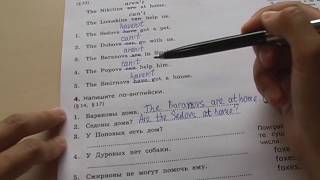 aren't
The Nikitins are at home.
can't
The Lunakins can help us.
haven't
1. The Sedovs have got a pet.
can't
2. The Dubovs can go with us.
aren't
3. The Baranovs are in
can't
4. The Popovs can help him.
haven't
5. The Smirnovs have got a house.
4. Напишите по-английски.
(§16, §17)
1. Барановы дома. The Baranovs are at home
2. Седовы дома? Are the Sedovs at home?
3. У Поповых есть дом?
4. У Дуровых нет собаки.
5. Смирновы не могут помочь ему.